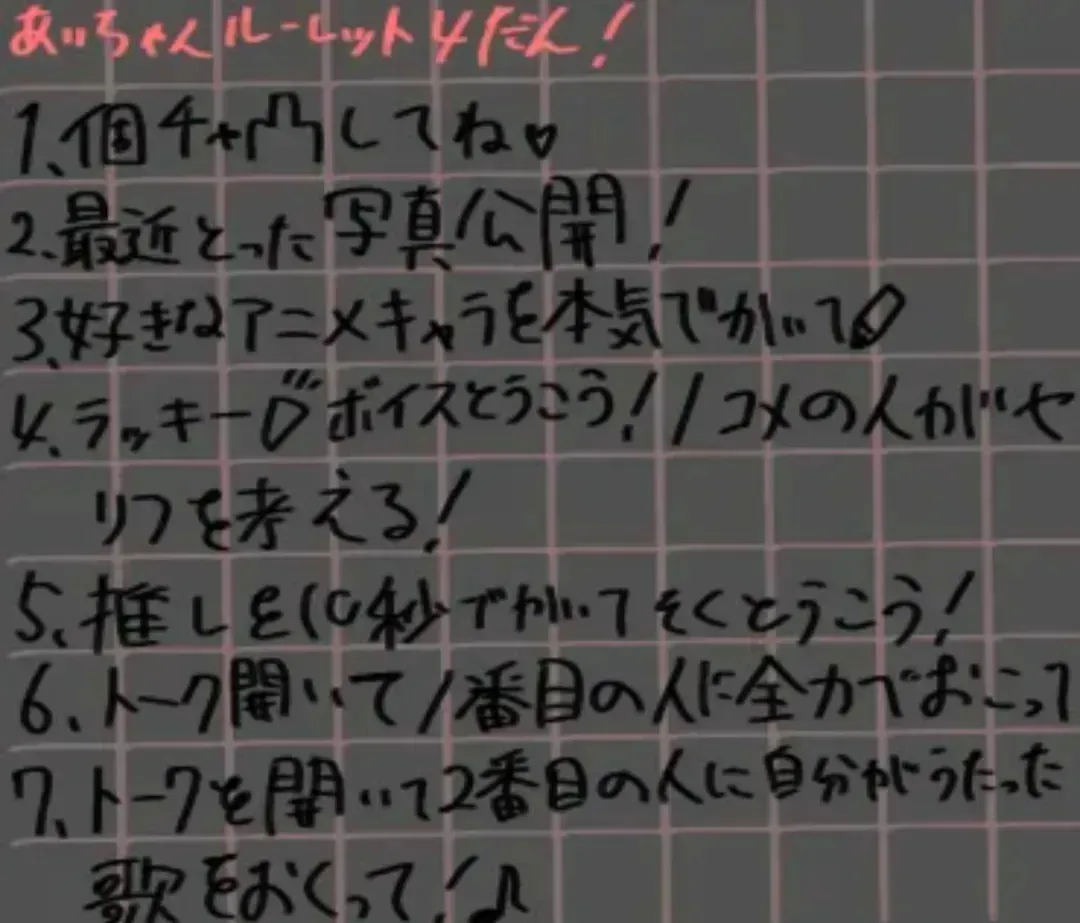 あいちゃんルーレット4だん!
1、個チャ凸してね♡
2、最近とった写真公開!
3、好きなアニメキャラを本気でかいて
4、ラッキー♡ボイスとうこう!1コメの人がセ
リフを考える!
5、推しを10秒でかいてそくとうこう!
6、トーク開いて1番目の人に全力でおこって
7、トークを開いて2番目の人に自分がうたった
歌をおくって!♪